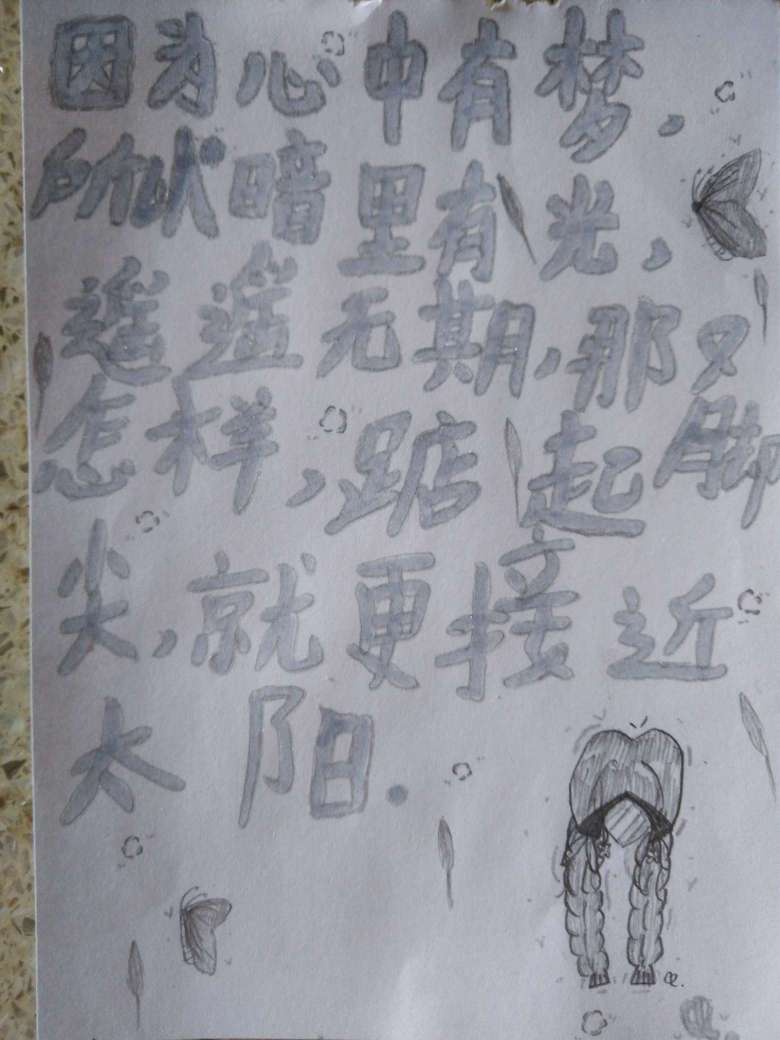 因为心中有梦，
所以暗里有光，
遥遥无期，那又
怎样，踮起脚
尖，就更接近
太阳.